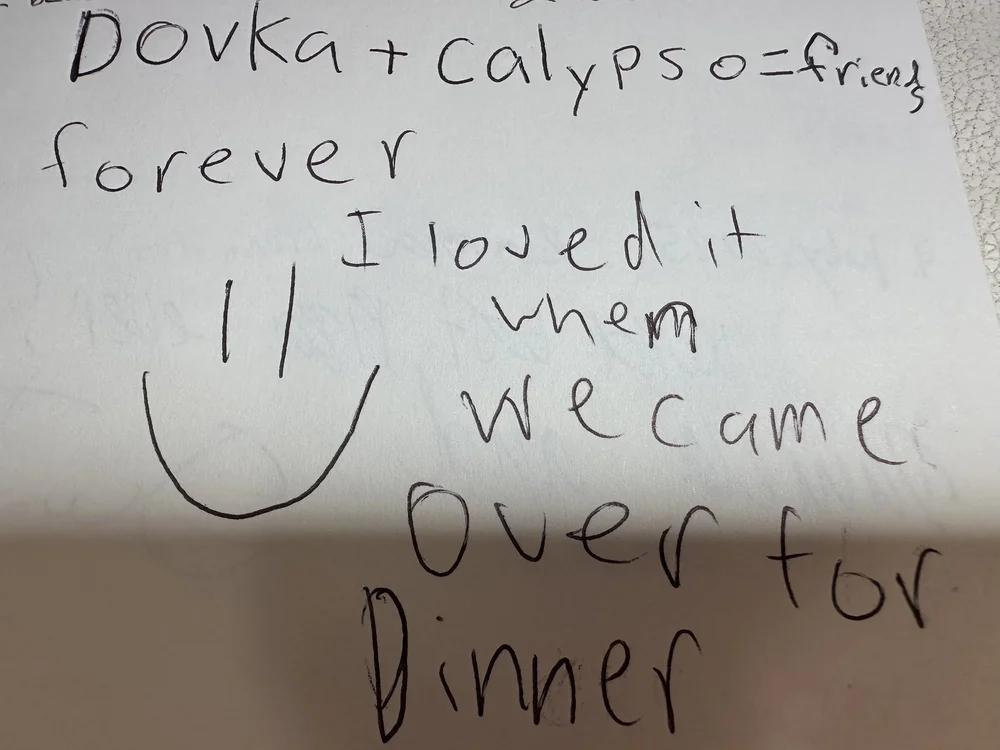 Dovka + Calypso=friends
forever
I loved it
whem
we came
Over for
Dinner